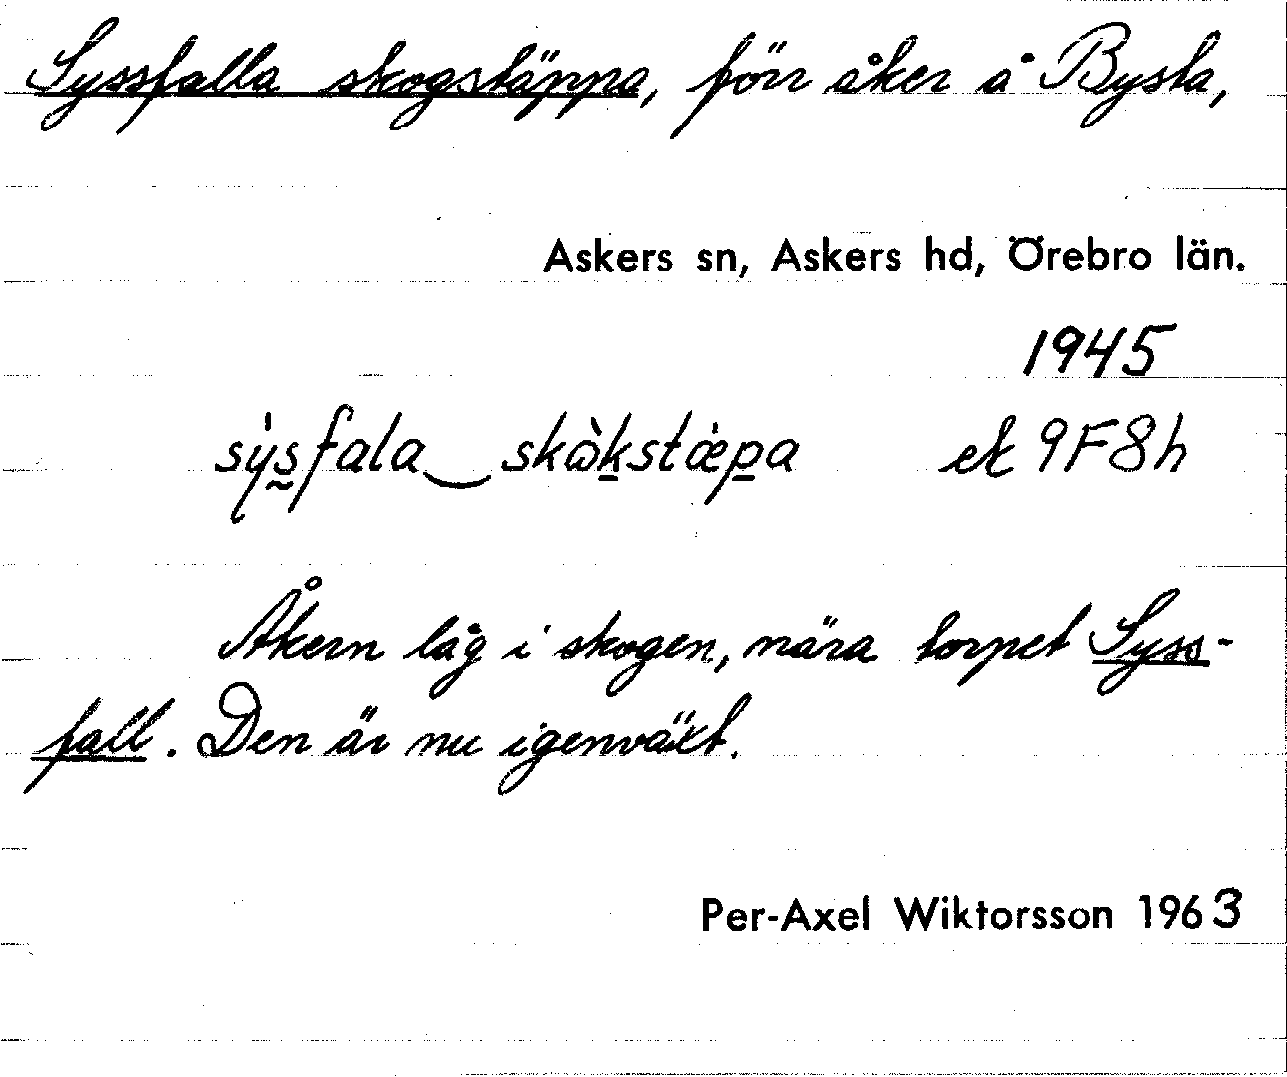 Syssfalla skogstäppa, förr åker å Bysta,
Askers sn, Askers hd, Örebro län.
1945
sỳs̰fala‿skɷ̀k̲stæ̀p̲a ek 9F8h
Åkern låg i skogen, nära torpet Syss-
fall. Den är nu igenväxt.
Per-Axel Wiktorsson 1963